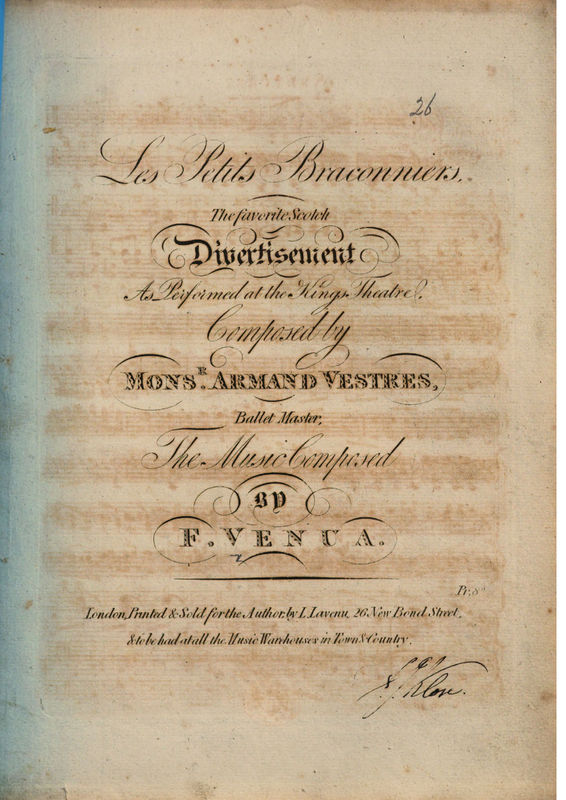 26
Les Petits Braconniers,
The favorite Scotch
Divertisement
As Performed at the Kings Theatre,
Composed by
MONS.R ARMAND VESTRES,
Ballet Master,
The Music Composed
BY
F. VENUA.
Pr: 8s
London, Printed & Sold for the Author, by L. Lavenu, 26 New Bond Street,
& to be had at all the Music Warehouses in Town & Country.